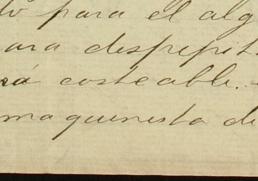 para el alg
ara despepit
rá costeable.
maquinista de